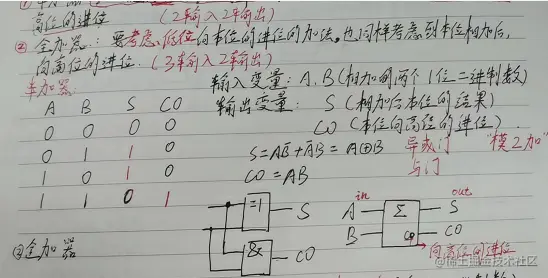 高位的进位 (2车输入2车输出)
② 全加器: 要考虑低位向本位的进位的加法,也同样考虑到本位相加后,
向高位的进位. (3车输入2车输出)
半加器
输入变量: A、B (相加的两个1位二进制数)
输出变量: S (相加后本位的结果)
CO (本位向高位的进位)
A B S CO
0 0 0 0
0 1 1 0
1 0 1 0
1 1 0 1
S=AB̅+A̅B=A⊕B 异或门 "模2加"
CO=AB 与门
=1 S
& CO
in out
A Σ S
B CO CO
向高位的进位
②全加器
@稀土掘金技术社区